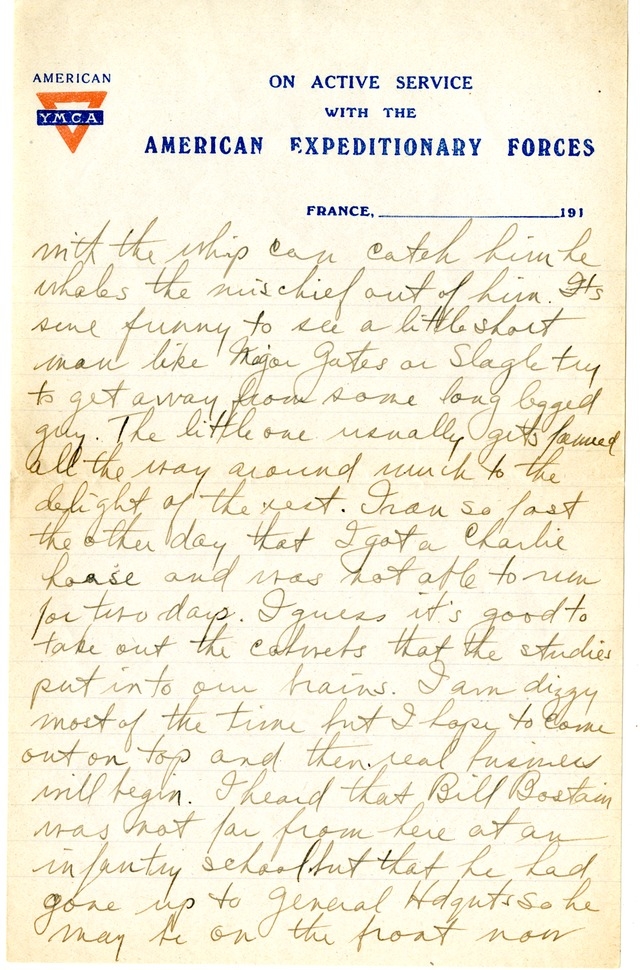 AMERICAN
Y.M.C.A.
ON ACTIVE SERVICE
WITH THE
AMERICAN EXPEDITIONARY FORCES
FRANCE, 191
with the whip can catch him he
whales the mischief out of him. Its
sure funny to see a little short
man like Major Gates or Slagle try
to get away from some long legged
guy. The little one usually gets fanned
all the way around much to the
delight of the rest. I ran so fast
the other day that I got a Charlie
hoase and was not able to run
for two days. I guess it's good to
take out the cobwebs that the studies
put into our brains. I am dizzy
most of the time but I hope to come
out on top and then real business
will begin. I heard that Bill Bostain
was not far from here at an
infantry school but that he had
gone up to General Hdqnts so he
may be on the front now